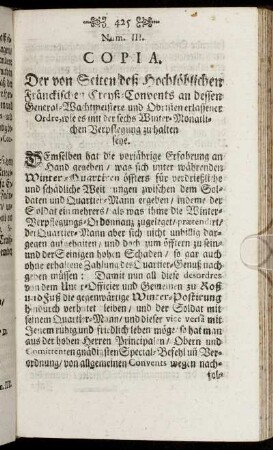 425
Num. III.
COPIA.
Der von Seiten deß Hochlöblichen
Fränckischen Creyß-Convents an dessen
General-Wachtmeistere und Obristen erlassener
Ordre, wie es mit der sechs Winter-Monatli-
chen Verpflegung zu halten
seye.
DEmselben hat die vorjährige Erfahrung an-
Hand gegeben / was sich unter währenden
Winter-Quartiren öffters für verdrießliche
und schädliche Weitrungen zwischen dem Sol-
daten und Quartier-Mann ergeben / indeme der
Soldat ein mehrers / als was ihme die Winter-
Verpflegungs-Ordonnanz zugelegt / prætendirt /
der Quartier-Mann aber sich nicht unbillig dar-
gegen aufgehalten / und doch zum öfftern zu sein-
und der Seinigen hohen Schaden / so gar auch
ohne erhaltene Zahlung des Quartier-Genuß nach-
geben müssen: Damit nun all diese desordres
von dem Unter-Officier und Gemeinen zu Roß
und Fuß die gegenwärtige Winter-Postirung
hindurch verhütet bleiben / und der Soldat mit
seinem Quartier-Mann / und dieser vice versâ mit
Jenem ruhig und friedlich leben möge / so hat man
aus der hohen Herren Principalen / Obern und
Committenten gnädigsten Special-Befehl uñ Ver-
ordnung / von allgemeinen Convents wegen nach-